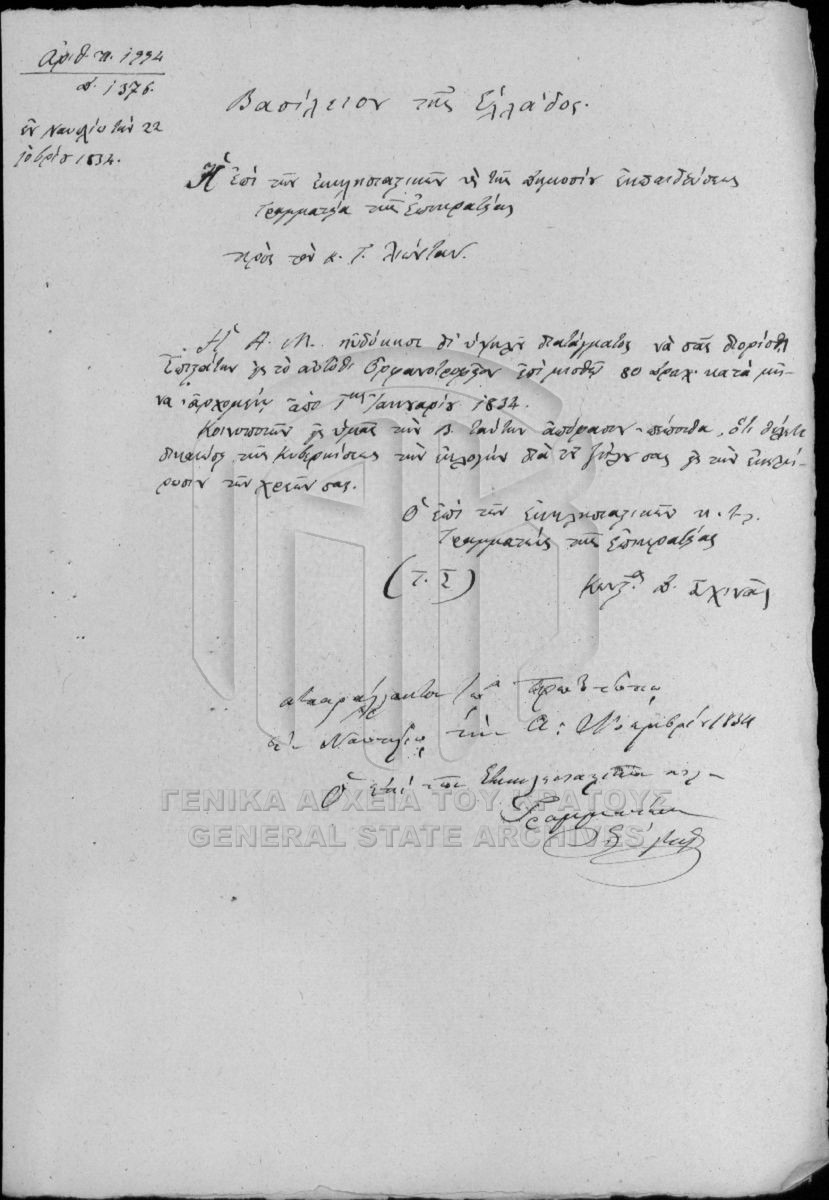 Ἀριθ. π. 1994
δ. 1376.
ἐν Ναυπλίῳ τὴν 22
1834.
Βασίλειον τῆς Ἑλλάδος.
Ἡ ἐπὶ τῶν ἐκκλησιαστικῶν κ τῆς δημοσίου ἐκπαιδεύσεως
Γραμματεία τῆς Ἐπικρατείας
πρὸς τὸν κ. Γ. Λεόνταν.
Ἡ Α. Μ. ηὐδόκησε δι' ὑψηλοῦ διατάγματος νὰ σᾶς διορίσῃ
εἰς τὸ αὐτόθι Ὀρφανοτροφεῖον ἐπὶ μισθῷ 80 δραχ. κατὰ μῆ-
να ἀρχομένῳ ἀπὸ 1ης Ἰανουαρίου 1834.
Κοινοποιῶν εἰς ὑμᾶς τὴν Β. ταύτην ἀπόφασιν πέποιθα, ὅτι θέλετε
δικαιώσει τῆς Κυβερνήσεως τὴν ἐκλογὴν διὰ τοῦ ζήλου σας εἰς τὴν ἐκπλή-
ρωσιν τῶν χρεῶν σας.
Ὁ ἐπὶ τῶν ἐκκλησιαστικῶν κ.τ.λ.
Γραμματεὺς τῆς Ἐπικρατείας
(Τ. Σ)
Κωνς. Δ. Σχινᾶς
ἀπαράλλακτον τῷ Πρωτοτύπῳ
ἐν Ναυπλίῳ τὴν Α: Νοεμβρίου 1834
Ὁ ἐπὶ τῶν Ἐκκλησιαστικῶν κτλ
Γραμματεὺς
ΓΕΝΙΚΑ ΑΡΧΕΙΑ ΤΟΥ ΚΡΑΤΟΥΣ
GENERAL STATE ARCHIVES